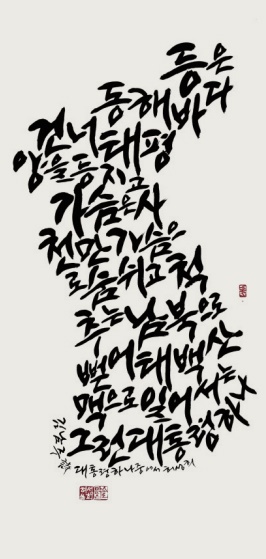 등은
동해바다
건너태평
양을등지고
가슴은사
천만가슴으
로숨쉬고척
추는남북으로
뻗어태백산
맥으로일어서는
그런대통령하나
대통령하나중에서